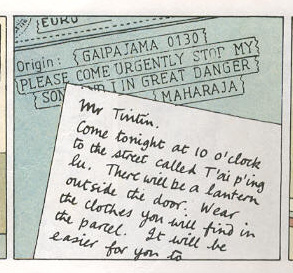 EURO
Origin: GAIPAJAMA 0130
PLEASE COME URGENTLY STOP MY
SON AND I IN GREAT DANGER
MAHARAJA
Mr Tintin.
Come tonight at 10 o'clock
to the street called T'ai p'ing
lu. There will be a lantern
outside the door. Wear
the clothes you will find in
the parcel. It will be
easier for you to